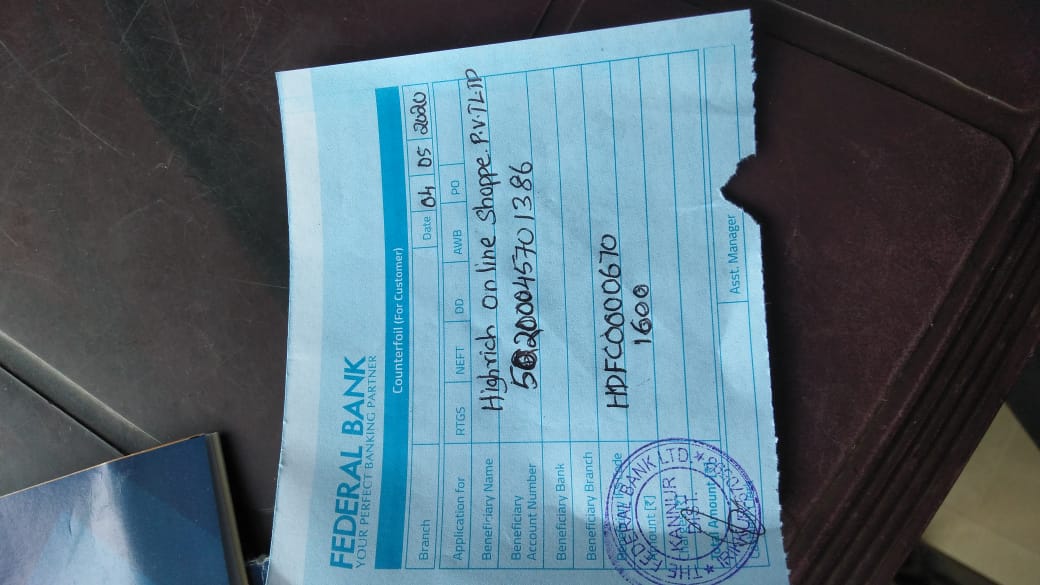 FEDERAL BANK
YOUR PERFECT BANKING PARTNER
Counterfoil (For Customer)
Branch Date 04 05 2020
Application for RTGS NEFT DD AWB PO
Beneficiary Name Highrich online Shoppe. P.V.TLTD
Beneficiary Account Number 50200045701386
Beneficiary Bank
Beneficiary Branch
HDFC0000670
Amount [₹] 1600
Total Amount [₹]
Asst. Manager
THE FEDERAL BANK LTD
KANNUR